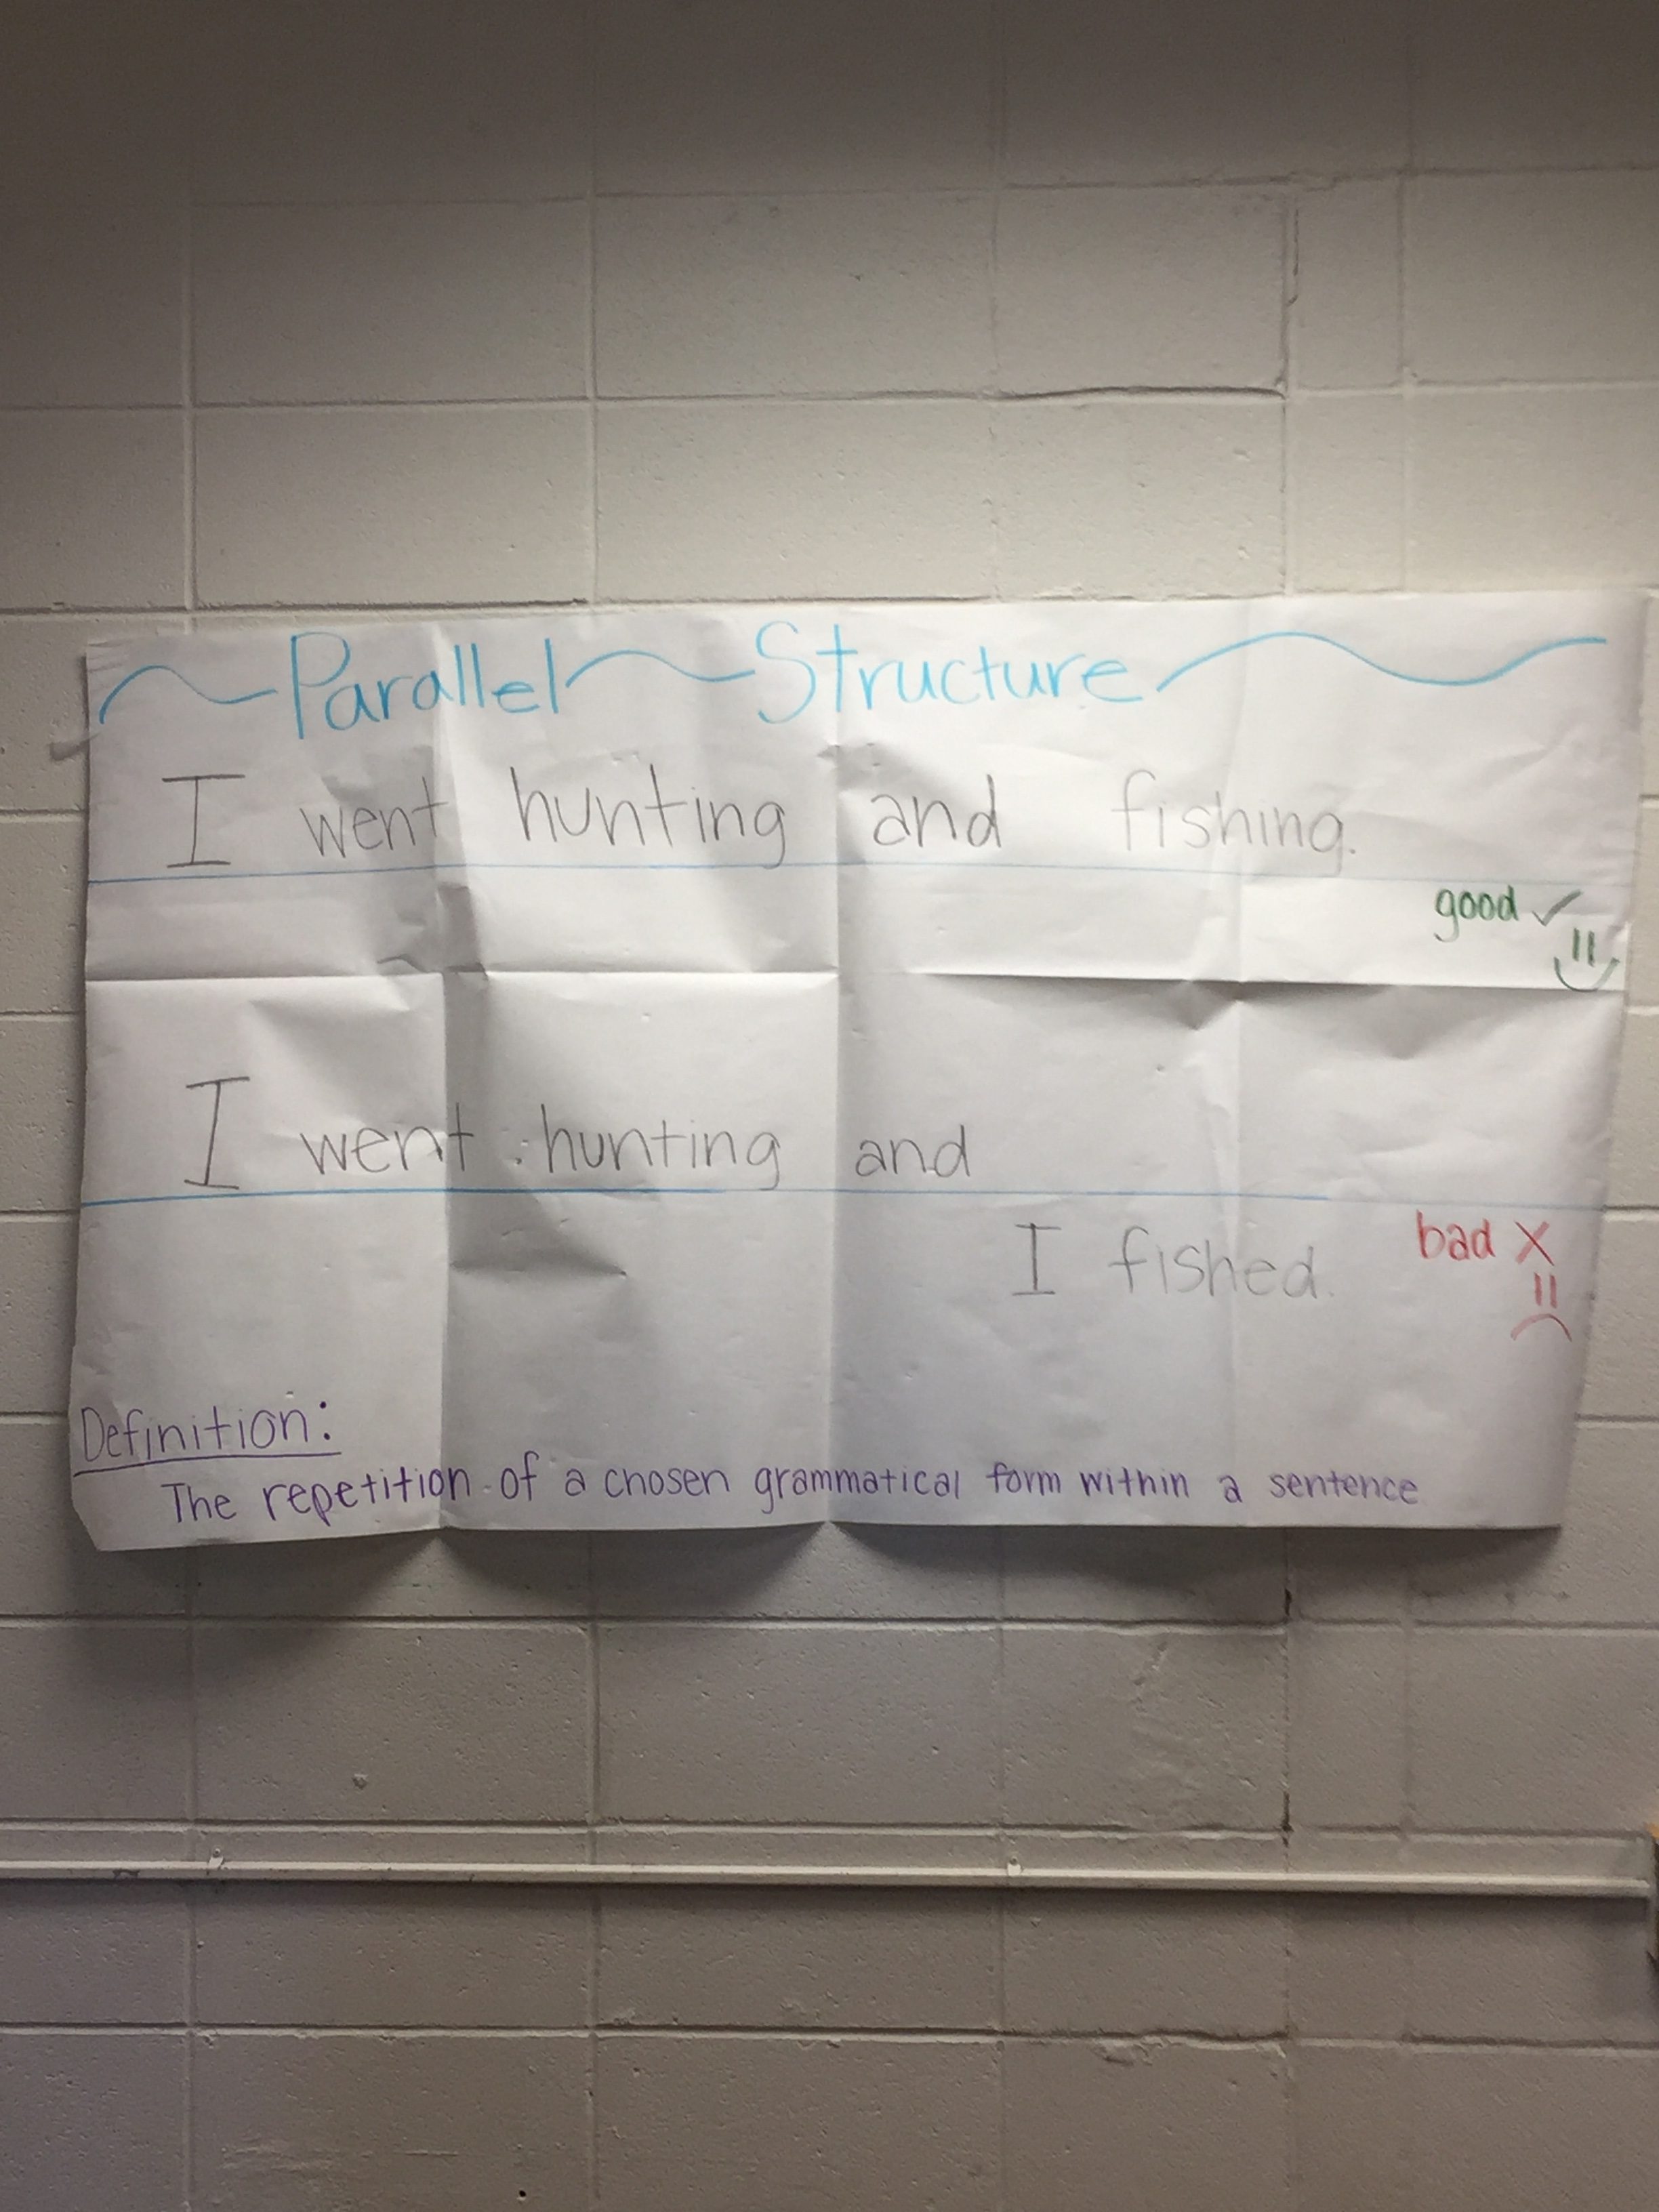 Parallel Structure
I went hunting and fishing.
good ✓
I went hunting and
I fished.
bad X
Definition:
The repetition of a chosen grammatical form within a sentence